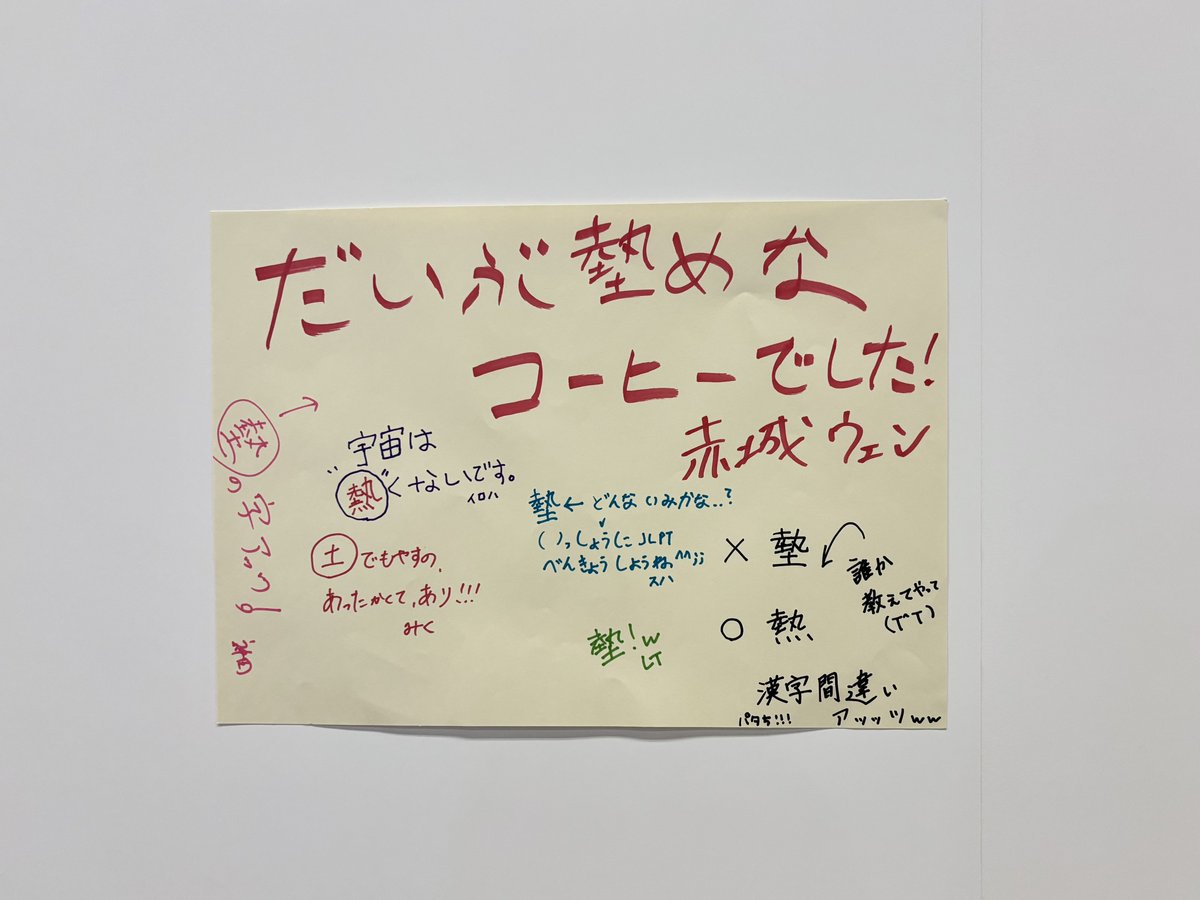 だいぶ塾めな
コーヒーでした!
赤城ウェン
塾の字アつ
宇宙は
"熱"くないです。
イロハ
土でもやすの、
あったかくて、あり!!!
みく
塾←どんないみかな..?
いっしょうにJLPT
べんきょうしようね^^;;
スハ
塾!w
LT
× 塾
誰か
教えてやって
(T^T)
○ 熱
漢字間違い
パタち!!!
アッッツww